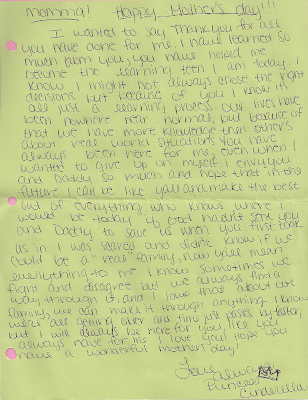 momma!! Happy Mother's day!!
I wanted to say Thank you for all
you have done for me. I have learned so
much from you, you have helped me
become the learning teen I am today. I
know I might not always chose the right
decisions but because of you I know it's
all just a learning process. Our lives have
been nowhere near normal, but because of
that we have more knowledge then others
about real world situations. You have
always been here for me, even when I
wanted to give up on myself. I envy you
and Daddy so much and hope that in the
future I can be like yall and make the best
out of everything. who knows where I
would be today if God hadn't sent you
and Daddy to save us when you first took
us in I was scared and didnt know if we
could be a "real" family, now yall mean
everything to me. I know sometimes we
fight and disagree but we always find a
way through it, and I love that about our
family, we can make it through anything. I know
were all getting older and time just passes by faster,
but I will always be here for you like you
always have for me. I love you! Hope you
have a wonderful mothers day!
Love,
Princess
Cinderella